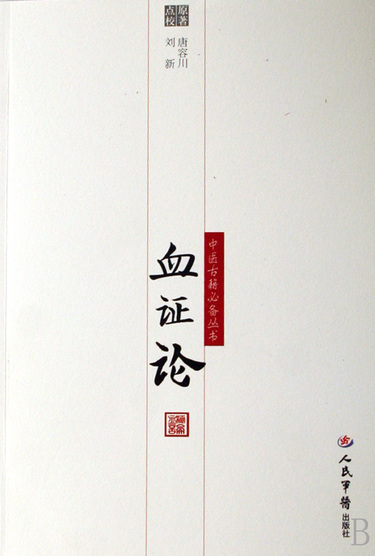 原著 唐容川
点校 刘新
中医古籍必备丛书
血证论
人民军医
出版社
B